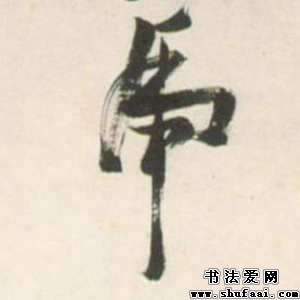 虎
书法爱网
www.shufaai.com